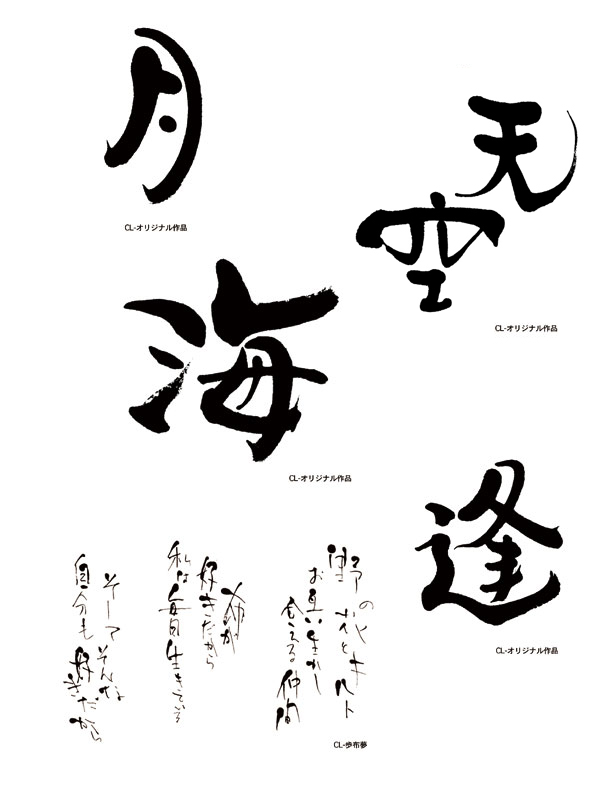 月
CL-オリジナル作品
天
空
CL-オリジナル作品
海
CL-オリジナル作品
逢
CL-オリジナル作品
野の
お互い
合える仲間
好きだから
私は毎日生きている
そしてそんな
自分も好きだから
CL-歩布夢